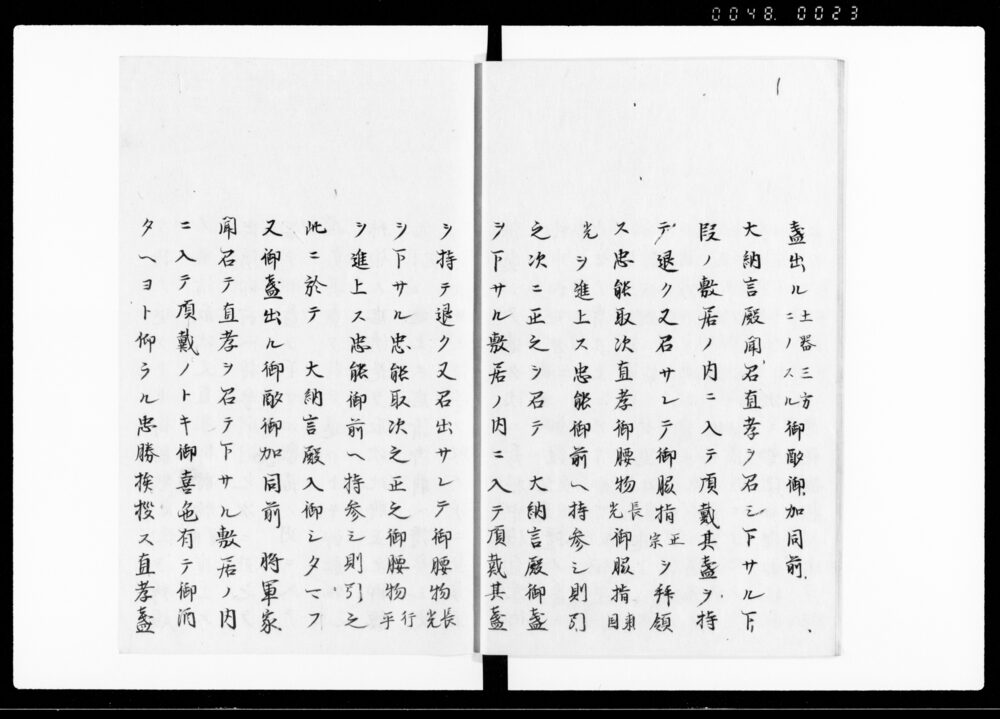 0048. 0023
盞出ル土器三方ニノスル御酌御加同前
大納言殿聞召直孝ヲ召シ下サル下
段ノ敷居ノ内ニ入テ頂戴其盞ヲ持
テ退ク又召サレテ御服指正宗ヲ拝領
ス忠能取次直孝御腰物長光御服指来国
光ヲ進上ス忠能御前ヘ持参シ則引
之次ニ正之ヲ召テ 大納言殿御盞
ヲ下サル敷居ノ内ニ入テ頂戴其盞
ヲ持テ退ク又召出サレテ御腰物長光
ヲ下サル忠能取次之正之御腰物行平
ヲ進上ス忠能御前ヘ持参シ則引之
此ニ於テ 大納言殿入御シタマフ
又御盞出ル御酌御加同前 将軍家
聞召テ直孝ヲ召テ下サル敷居ノ内
ニ入テ頂戴ノトキ御喜色有テ御酒
タヘヨト仰ラル忠勝挨拶ス直孝盞